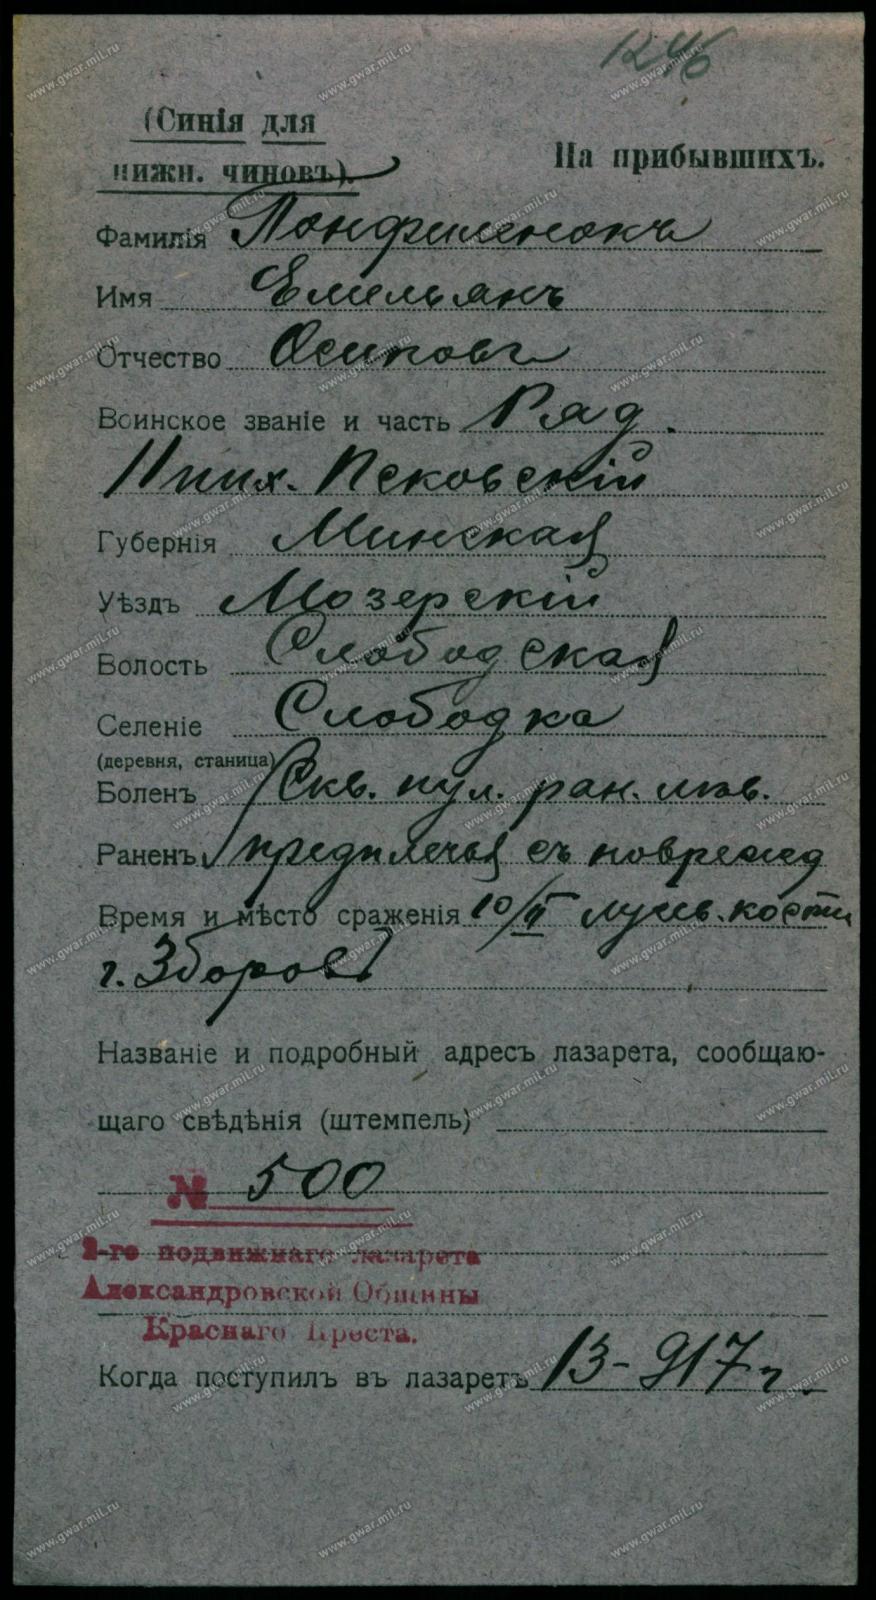 (Синія для
нижн. чиновъ).
На прибывшихъ.
Фамилія Панфиленокъ
Имя Емельянъ
Отчество Осиповъ
Воинское званіе и часть Ряд.
11 пѣх. Псковскій
Губернія Минская
Уѣздъ Мозерскій
Волость Слободская
Селеніе Слободка
(деревня, станица)
Боленъ Скв. пул. ран. лѣв.
Раненъ предплечья съ поврежд
Время и мѣсто сраженія 10/II лучев. кости
г. Зборов
Названіе и подробный адресъ лазарета, сообщаю-
щаго свѣдѣнія (штемпель)
№ 500
2-го подвижнаго лазарета
Александровской Общины
Краснаго Креста.
Когда поступилъ въ лазаретъ 13- 917 г.
www.gwar.mil.ru